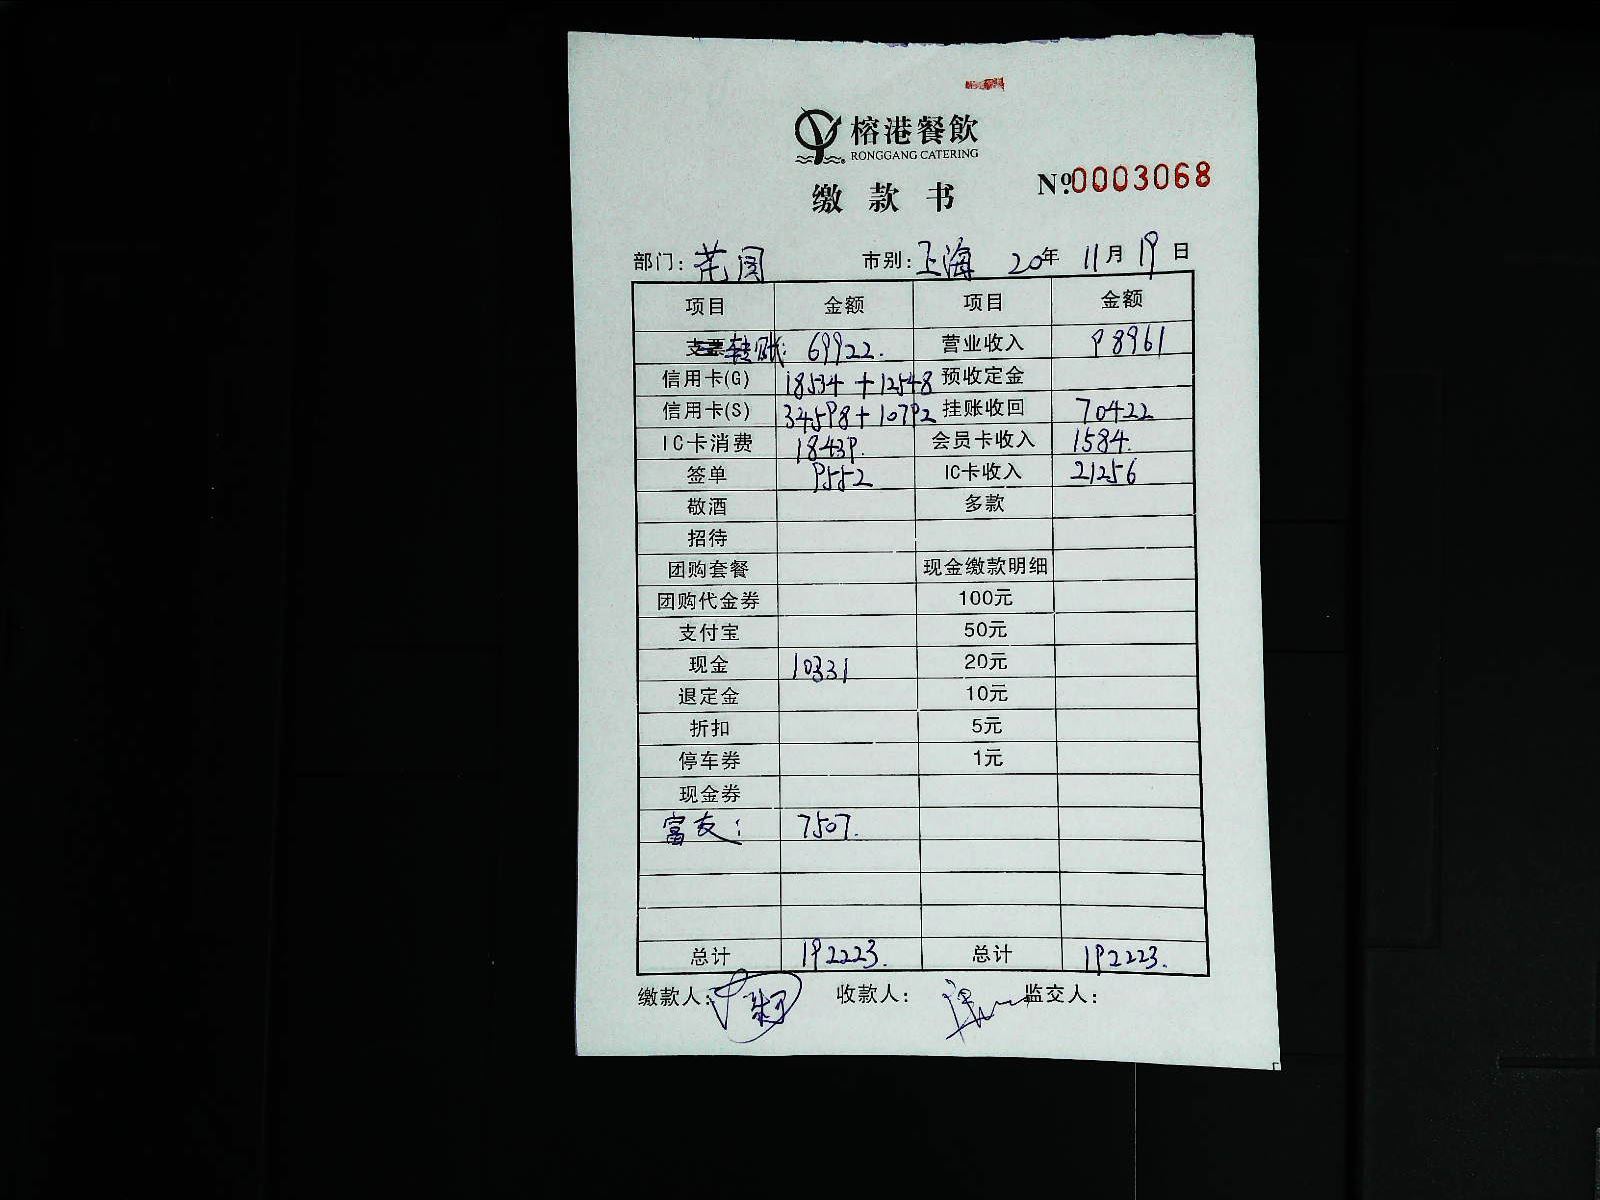 榕港餐飲
RONGGANG CATERING
缴款书 Nº:0003068
部门: 花园 市别: 上海 20年 11月 19日
项目 金额 项目 金额
支票 转账: 69922. 营业收入 98961
信用卡(G) 18534+12548 预收定金
信用卡(S) 34598+10792 挂账收回 70422
IC卡消费 18439. 会员卡收入 1584.
签单 9552 IC卡收入 21256
敬酒 多款
招待
团购套餐 现金缴款明细
团购代金券 100元
支付宝 50元
现金 10331 20元
退定金 10元
折扣 5元
停车券 1元
现金券
富友: 7507.
总计 192223. 总计 192223.
缴款人: 收款人: 监交人: